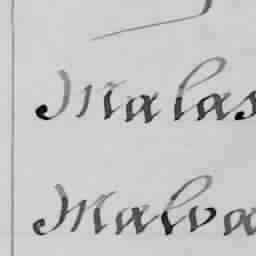 Malas
Malva